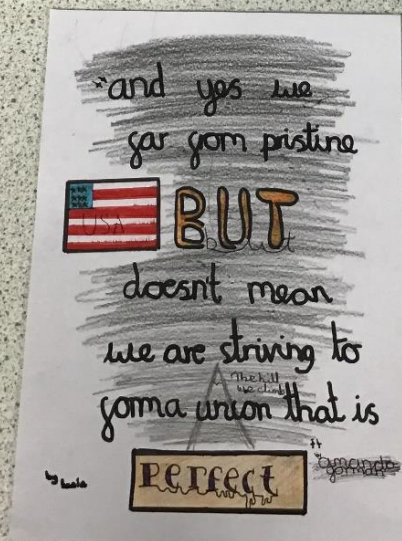 "and yes we
far from pristine
USA
BUT
doesn't mean
we are striving to
The hill
we climb
forma union that is
Perfect
by
amanda
gorman
by